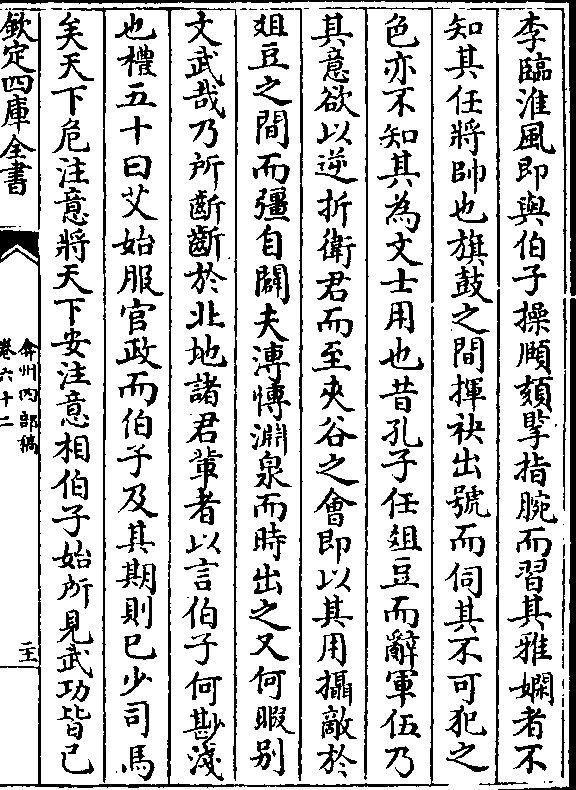 李臨淮風即與伯子操頫頦擥指腕而習其雅嫻者不
知其任將帥也旗鼓之間揮袂出號而伺其不可犯之
色亦不知其為文士用也昔孔子任俎豆而辭軍伍乃
其意欲以逆折衛君而至夾谷之會即以其用攝敵於
俎豆之間而彊自闢夫溥愽淵泉而時出之又何暇别
文武哉乃所斷斷於北地諸君軰者以言伯子何尠淺
也禮五十曰艾始服官政而伯子及其期則已少司馬
矣天下危注意將天下安注意相伯子始所見武功皆已
欽定四庫全書
弇州四部稿
卷六十二
二十五